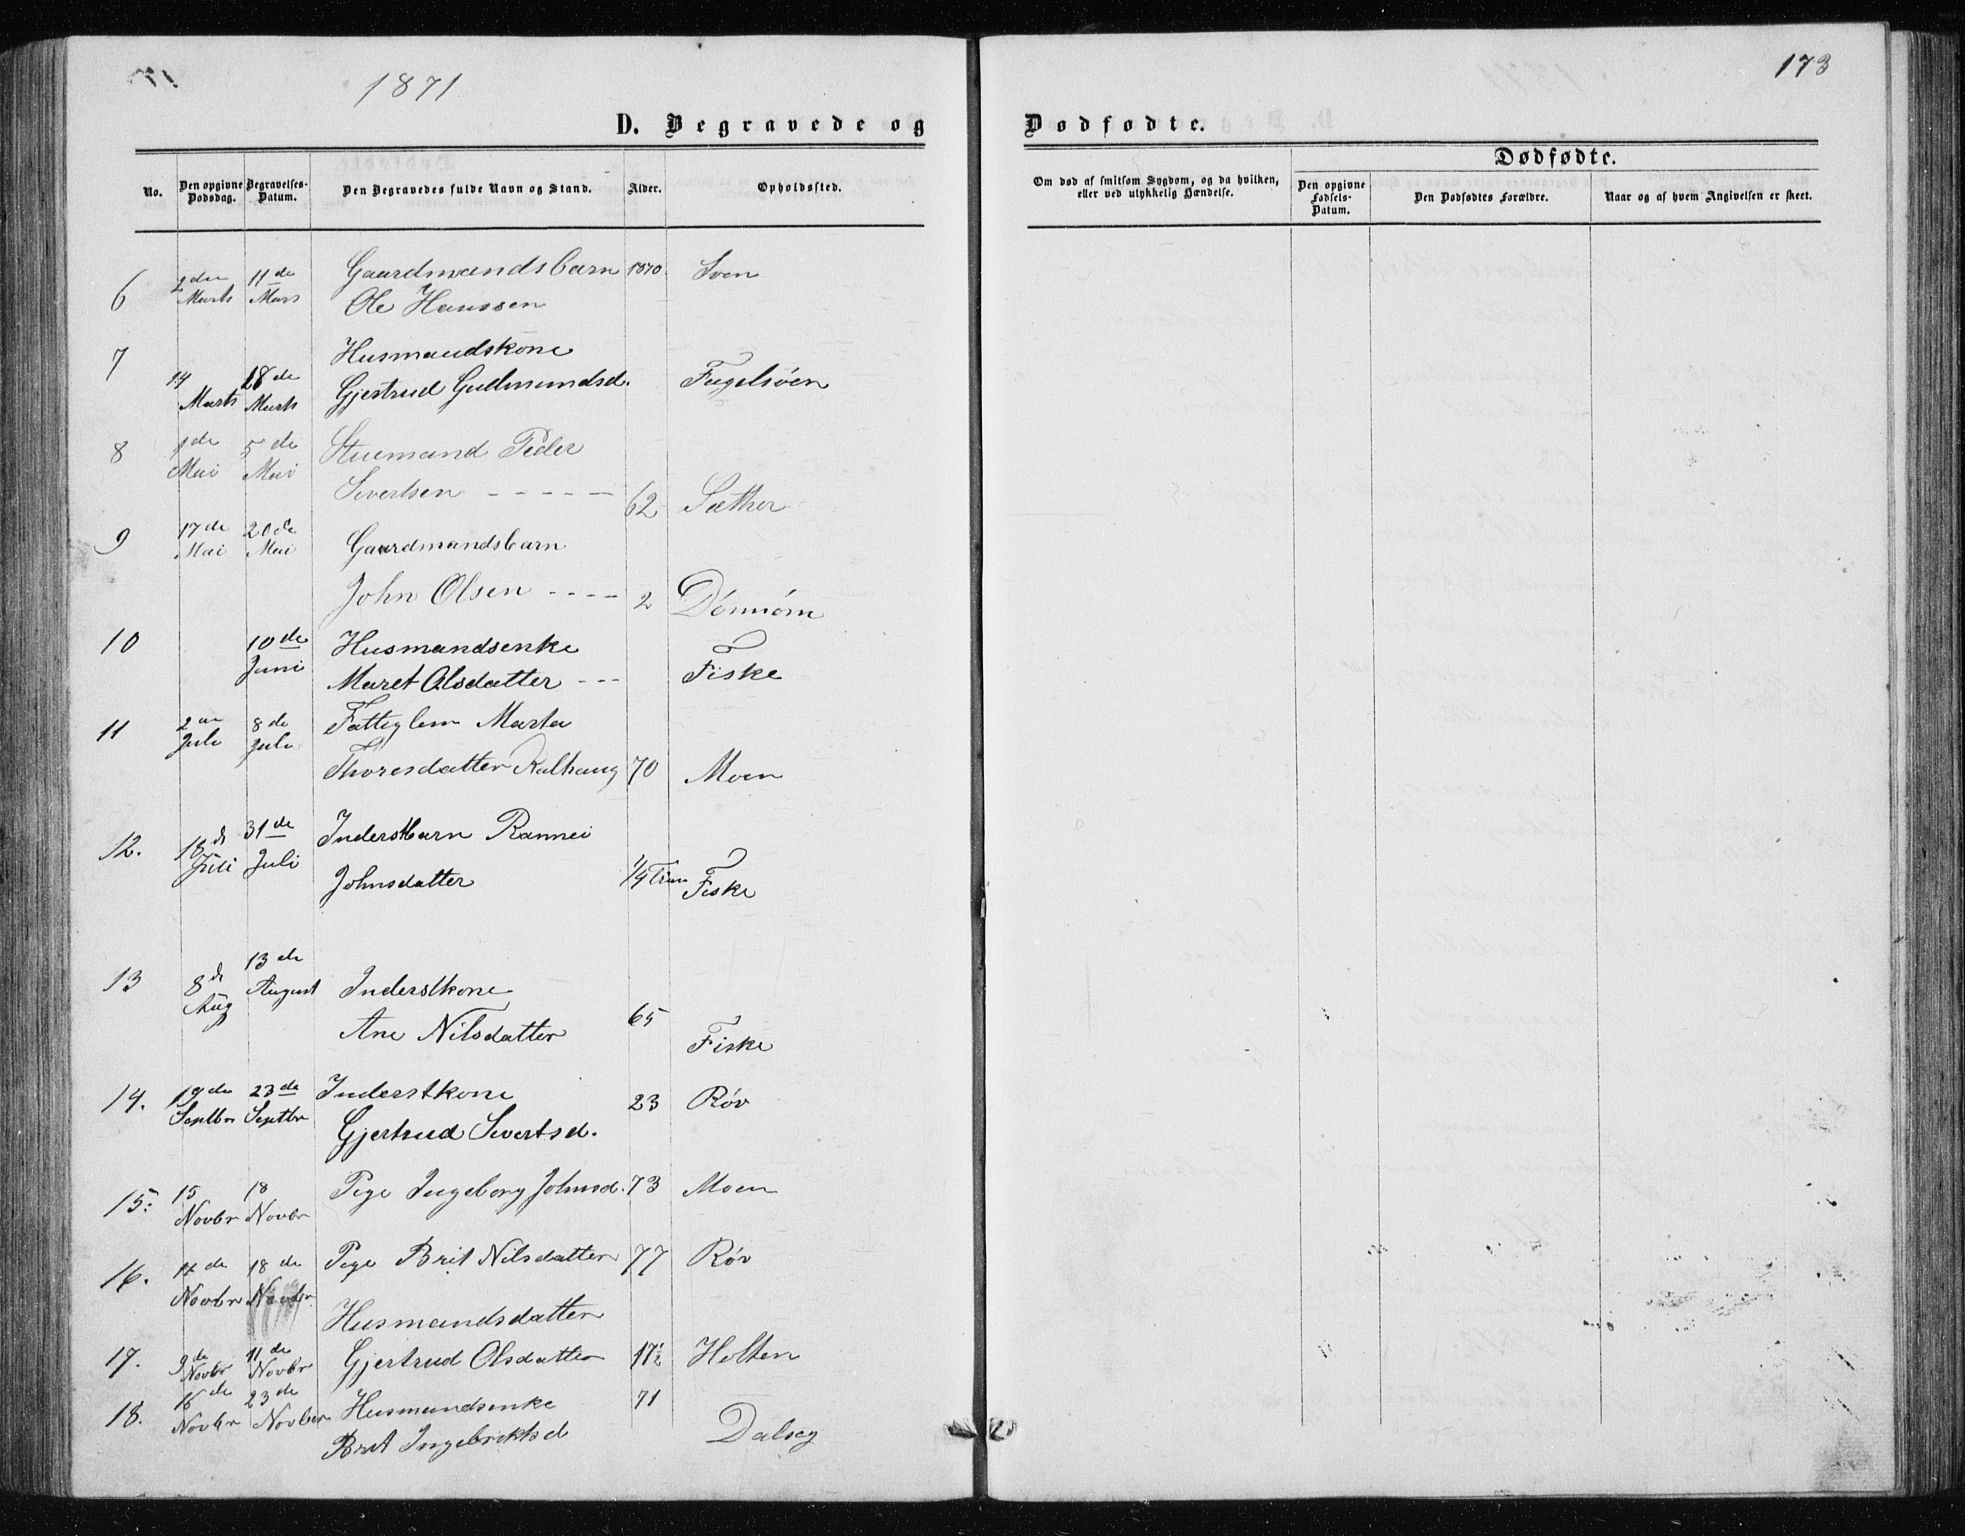 1871
173
D. Begravede og Dødfødte.
No.
Den opgivne Dødsdag.
Begravelses-Datum.
Den Begravedes fulde Navn og Stand.
Alder.
Opholdssted.
Om død af smitsom Sygdom, og da hvilken, eller ved ulykkelig Hændelse.
Dødfødte.
Den opgivne Fødsels-Datum.
Den Dødfødtes Forældre.
Naar og af hvem Angivelsen er skeet.
6 2den Marts 11de Mars Gaardmandsbarn 1870. Sven
Ole Hanssen
7 14 Marts 18de Marts Husmandskone
Gjertrud Gudmundsd. Fugelsöen
8 1de Mai 5de Mai Stuemand Peder
Sivertsen - - - - - 62 Sæther
9 17de Mai 20de Mai Gaardmandsbarn
John Olsen - - - - 2 Dönnöm
10 10de Juni Husmandsenke
Maret Olsdatter - - - Fiske
11 2den Juli 8de Juli Fattiglem Marta
Thoresdatter Kalhaug 70 Moen
12. 18de Juli 31de Juli Inderstbarn Rannei
Johnsdatter 1/4 Fiske
13 8de Aug 13de August Inderstkone
Ane Nilsdatter 65 Fiske
14. 19de Septbr 23de Septbr Inderstkone 23 Röv
Gjertrud Sivertsd.
15. 15 Novbr 18 Novbr Pige Ingeborg Johnsd. 73 Moen
16. 14de Novbr 18de Novbr Pige Brit Nilsdatter 77 Röv
17. 9de Novbr 11de Novbr Husmandsdatter
Gjertrud Olsdatter 17½ Holten
18. 16de Novbr 23de Novber Husmandsenke 71
Brit Ingebriktsd Dalseg